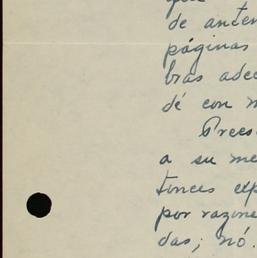 de anten
páginas
bras adec
dé con m
a su me
tonces exp
por razone
das; nó.